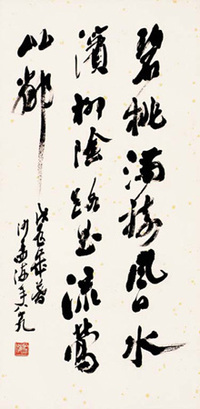 碧桃满树风日水
滨柳阴路曲流莺
比邻
戊辰岁暮